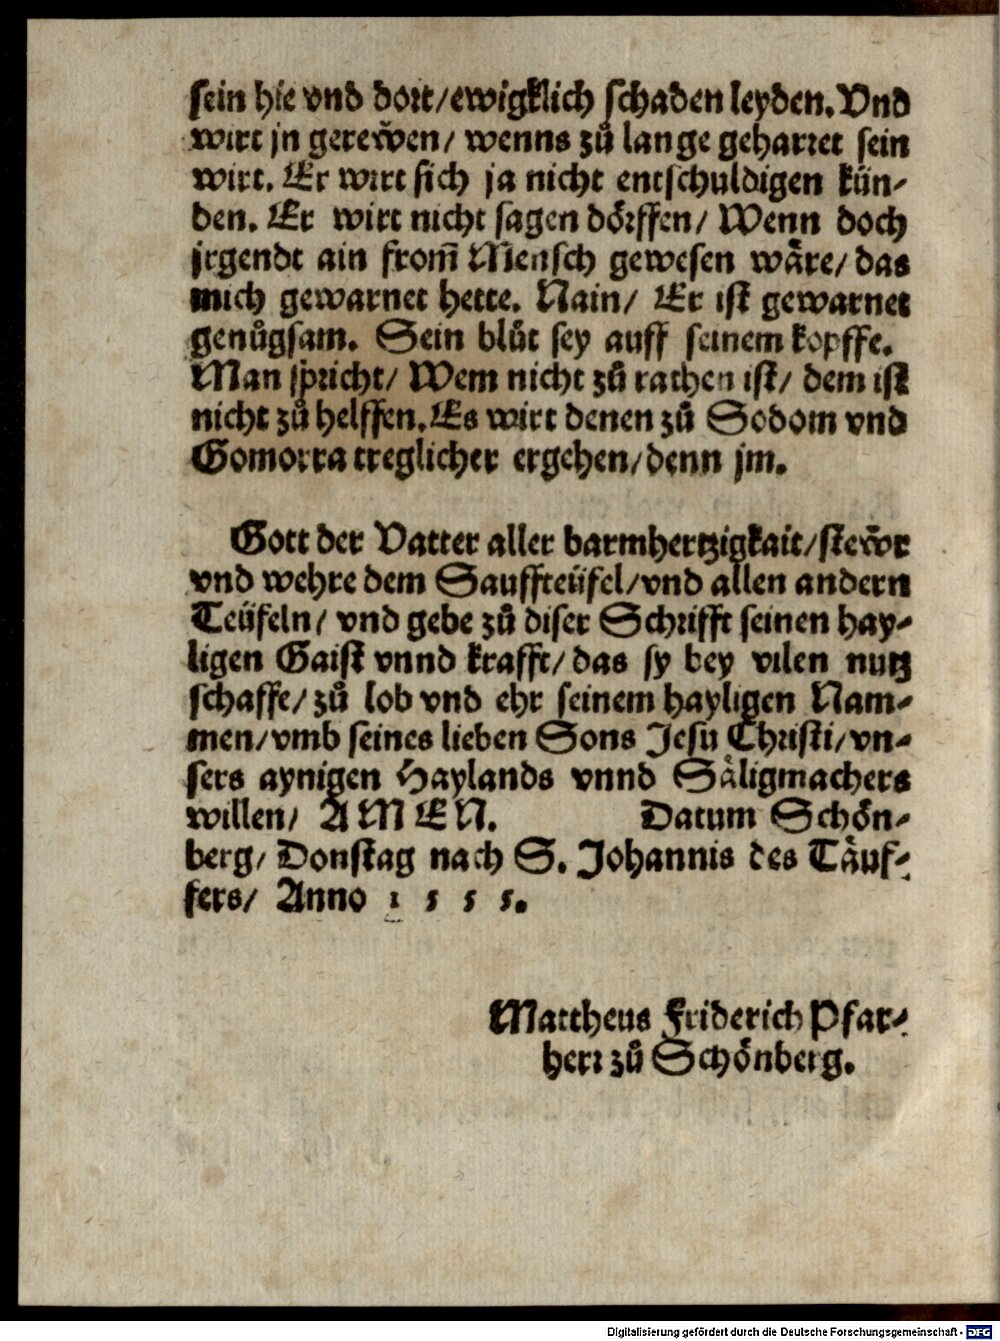 sein hie vnd dort/ewigklich schaden leyden. Vnd
wirt jn gereẅen/ wenns zů lange geharret sein
wirt. Er wirt sich ja nicht entschuldigen kün-
den. Er wirt nicht sagen dörffen/ Wenn doch
jrgendt ain from̃ Mensch gewesen wäre/ das
mich gewarnet hette. Nain/ Er ist gewarnet
genůgsam. Sein blůt sey auff seinem kopffe.
Man spricht/ Wem nicht zů rathen ist/ dem ist
nicht zů helffen. Es wirt denen zů Sodom vnd
Gomorra treglicher ergehen/denn jm.
Gott der Vatter aller barmhertzigkait/steẅr
vnd wehre dem Sauffteüfel/vnd allen andern
Teüfeln/ vnd gebe zů diser Schrifft seinen hay-
ligen Gaist vnnd krafft/ das sy bey vilen nutz
schaffe/ zů lob vnd ehr seinem hayligen Nam-
men/vmb seines lieben Sons Jesu Christi/vn-
sers aynigen Haylands vnnd Säligmachers
willen/ AMEN. Datum Schön-
berg/ Donstag nach S. Johannis des Täuf-
fers/ Anno 1 5 5 5.
Mattheus Friderich Pfar-
herr zů Schönberg.
Digitalisierung gefördert durch die Deutsche Forschungsgemeinschaft - DFG